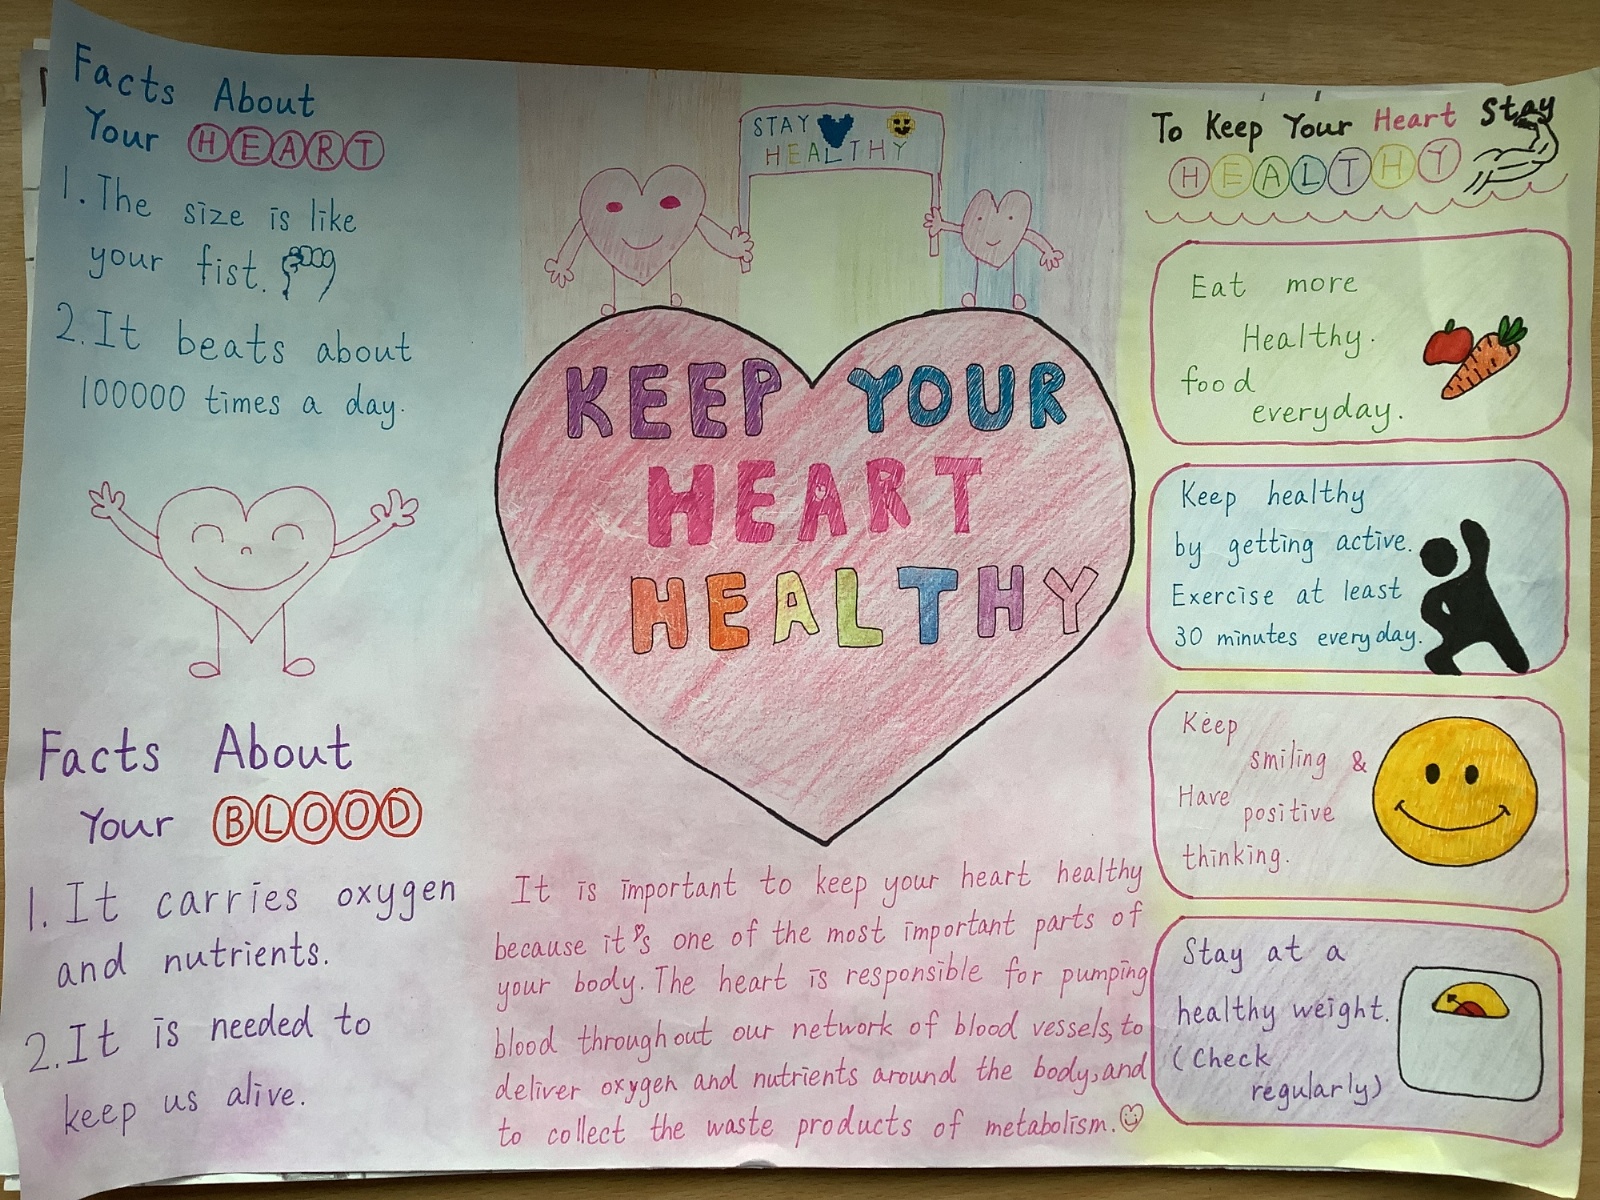 Facts About
Your HEART
1. The size is like
your fist.
2. It beats about
100000 times a day.
Facts About
Your BLOOD
1. It carries oxygen
and nutrients.
2. It is needed to
keep us alive.
STAY
HEALTHY
KEEP YOUR
HEART
HEALTHY
It is important to keep your heart healthy
because it's one of the most important parts of
your body. The heart is responsible for pumping
blood throughout our network of blood vessels, to
deliver oxygen and nutrients around the body, and
to collect the waste products of metabolism.
To Keep Your Heart Stay
HEALTHY
Eat more
Healthy.
food
everyday.
Keep healthy
by getting active.
Exercise at least
30 minutes everyday.
Keep
smiling &
Have
positive
thinking.
Stay at a
healthy weight.
(Check
regularly)